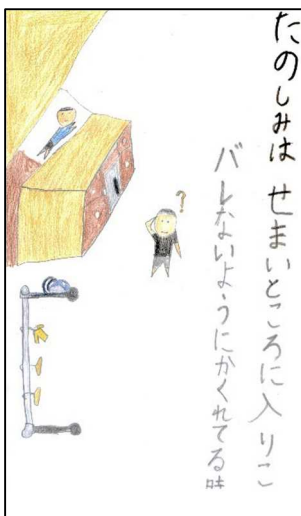 たのしみは せまいところに入りこ
バレないようにかくれてる時
?